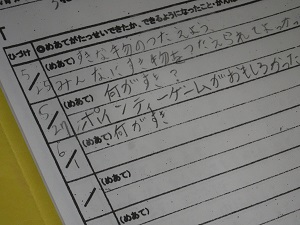 ひづけ ◎めあてがたっせいできたか、できるようになったこと・がん
5/25 (めあて) すきな物のつたえよう
みんなにすき物をつたえられてよかっ
5/27 (めあて) 何がすき?
ポインティーゲームがおもしろかった
6/1 (めあて) 何がすき
/ (めあて)
/ (めあて)